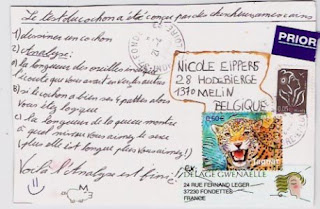 Le test du cochon a été conçu par des chercheurs américains
1) dessiner un cochon
2) Analyse:
a) la longueur des oreilles indique
l'écoute que vous avez envers les autres
b) si le cochon a bien ses 4 pattes alors
Vous êtes logique
c) la longueur de la queue montre
à quel niveau vous aimez le sexe
(plus elle est longue plus vous aimez!)
Voilà l'Analyse est finie!
PRIOR
NICOLE EIPPERS
28 HODEBIERGE
1370 MELIN
BELGIQUE
0,50€
Jaguar
DELAGE GWENAELLE
24 RUE FERNAND LEGER
37230 FONDETTES
FRANCE